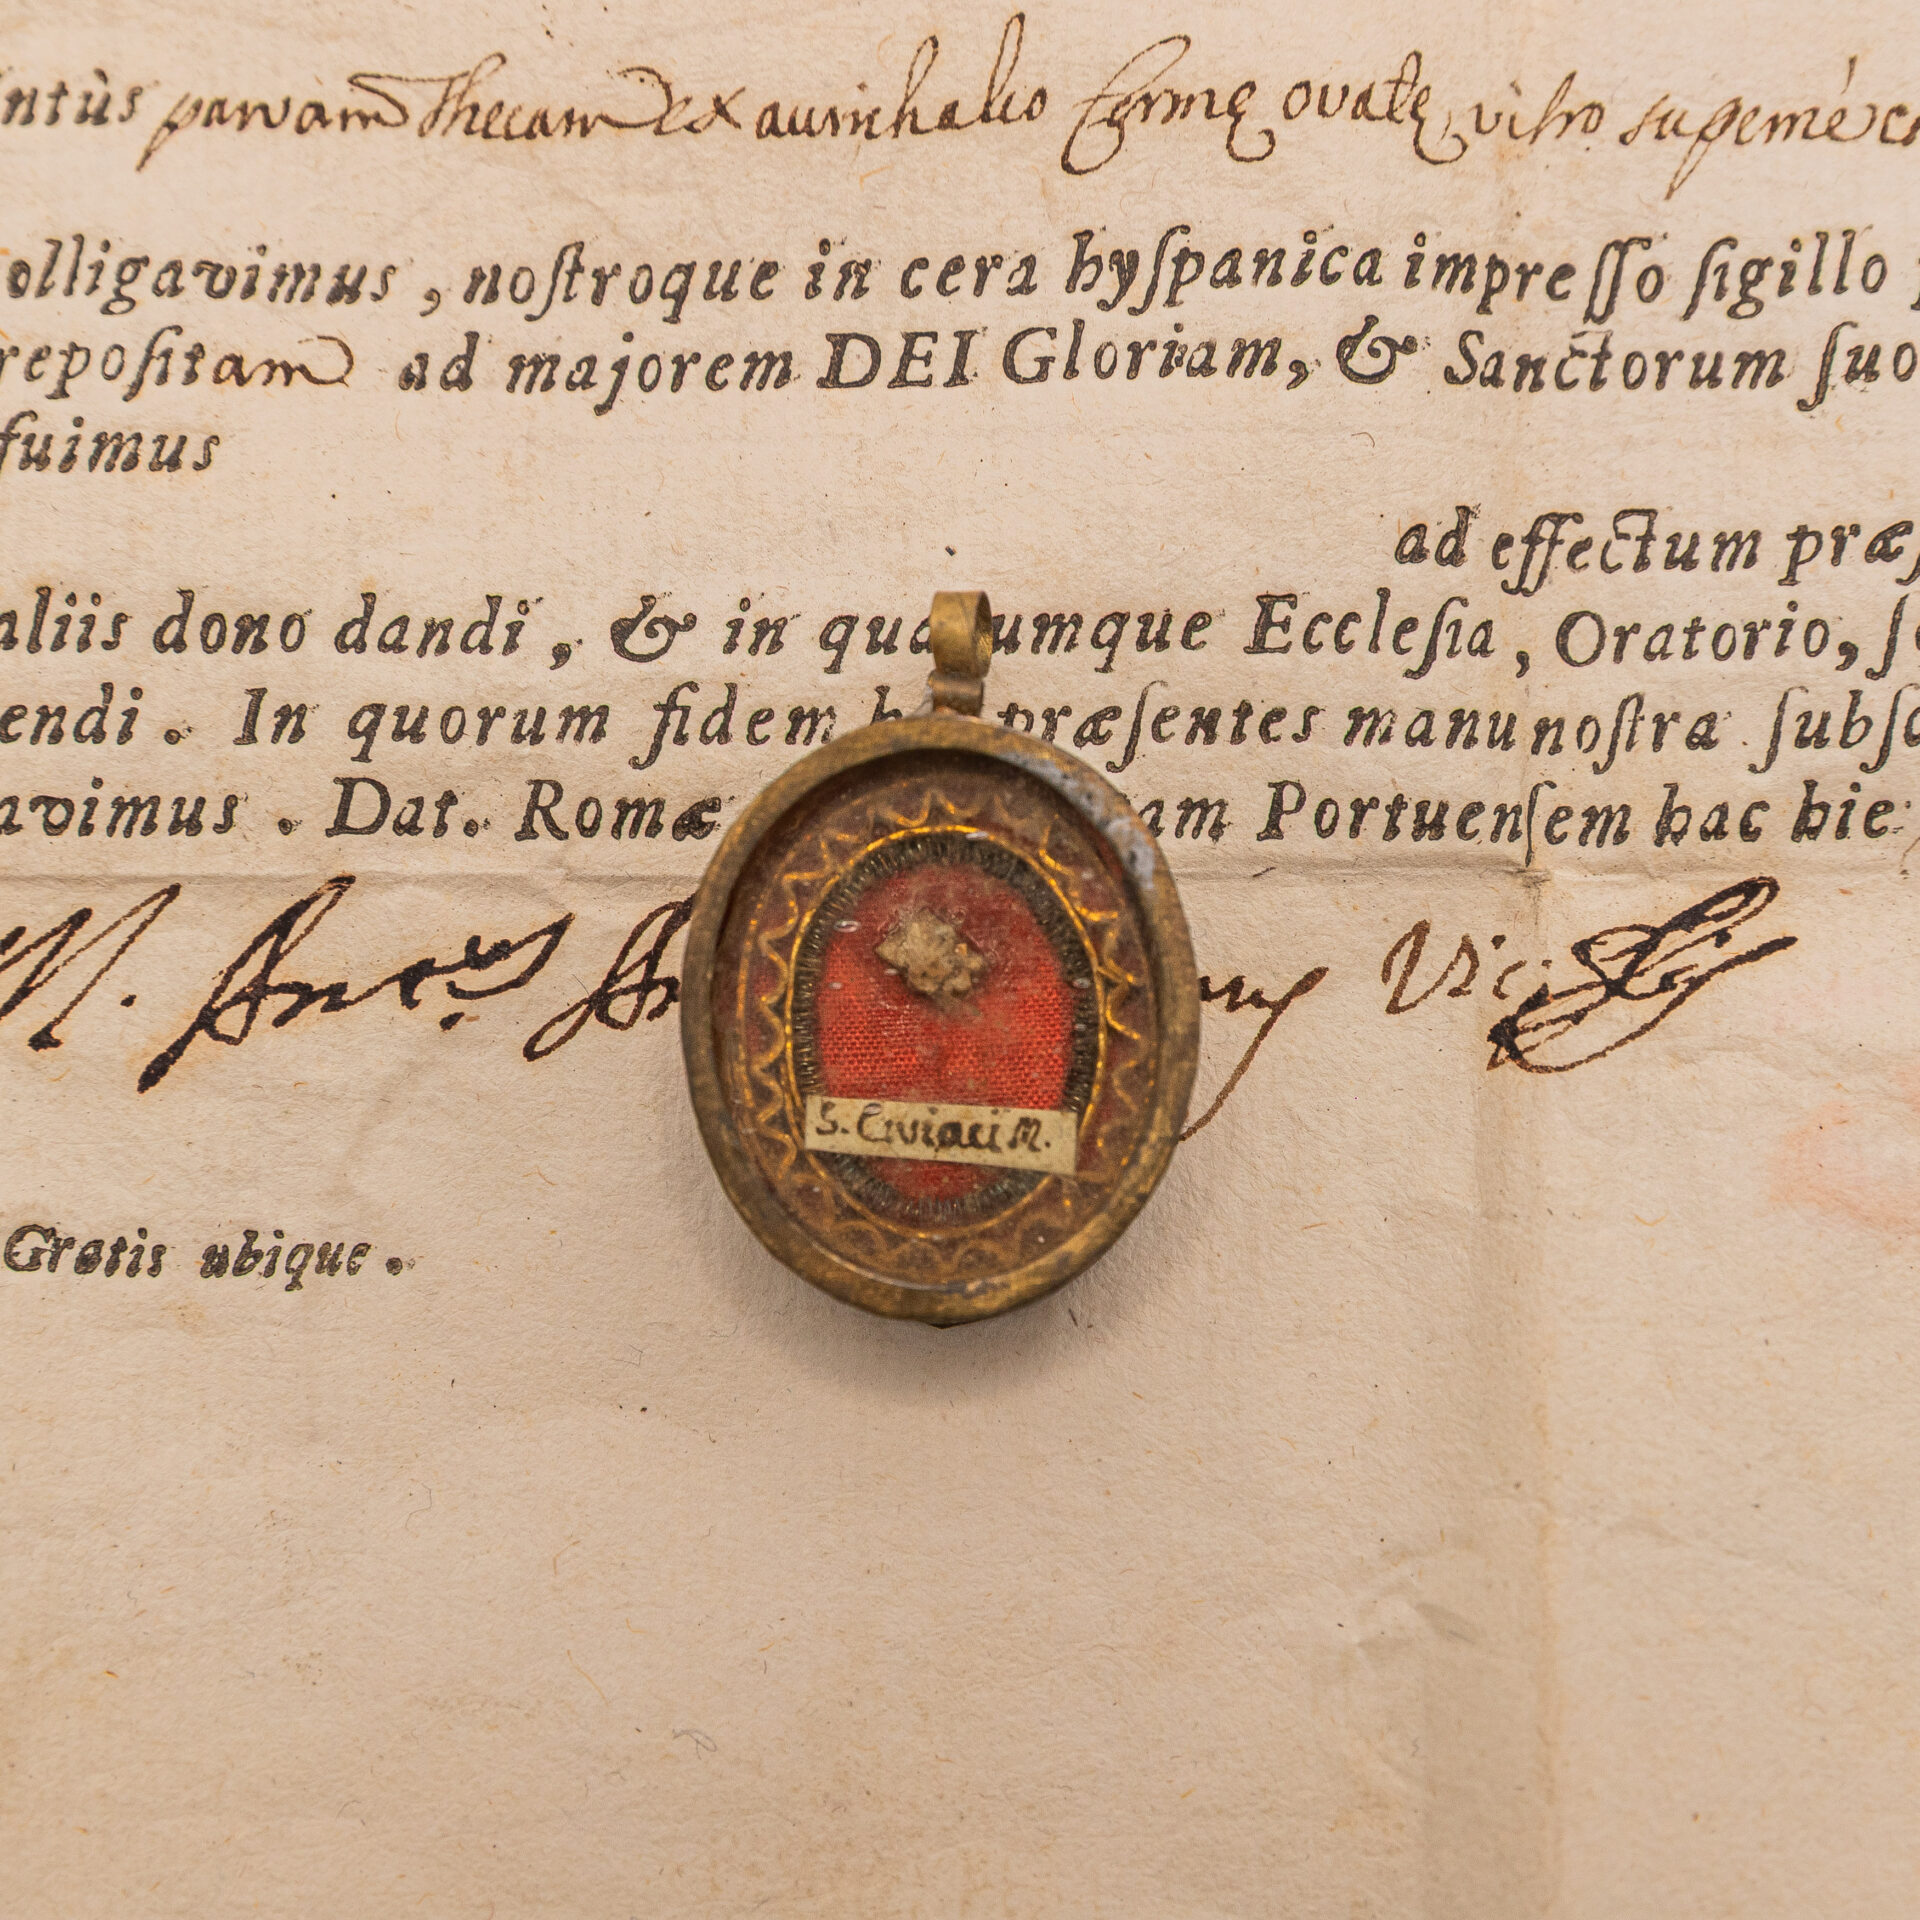 intùs parvam Thecam ex aurichalco formę ovatę, vitro supernè
olligavimus, noſtroque in cera hyſpanica impreſſo ſigillo
repoſitam ad majorem DEI Gloriam, & Sanctorum ſuo
fuimus
ad effectum præſ
aliis dono dandi, & in qua umque Eccleſia, Oratorio, ſ
endi. In quorum fidem h præſentes manu noſtra ſubſc
avimus. Dat. Romæ am Portuenſem hac bie
Vic
S. Ciriaci M.
Gratis ubique.